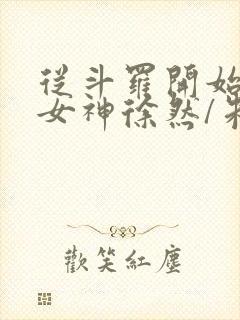 從斗羅開始
女神徐然/
歡笑紅塵